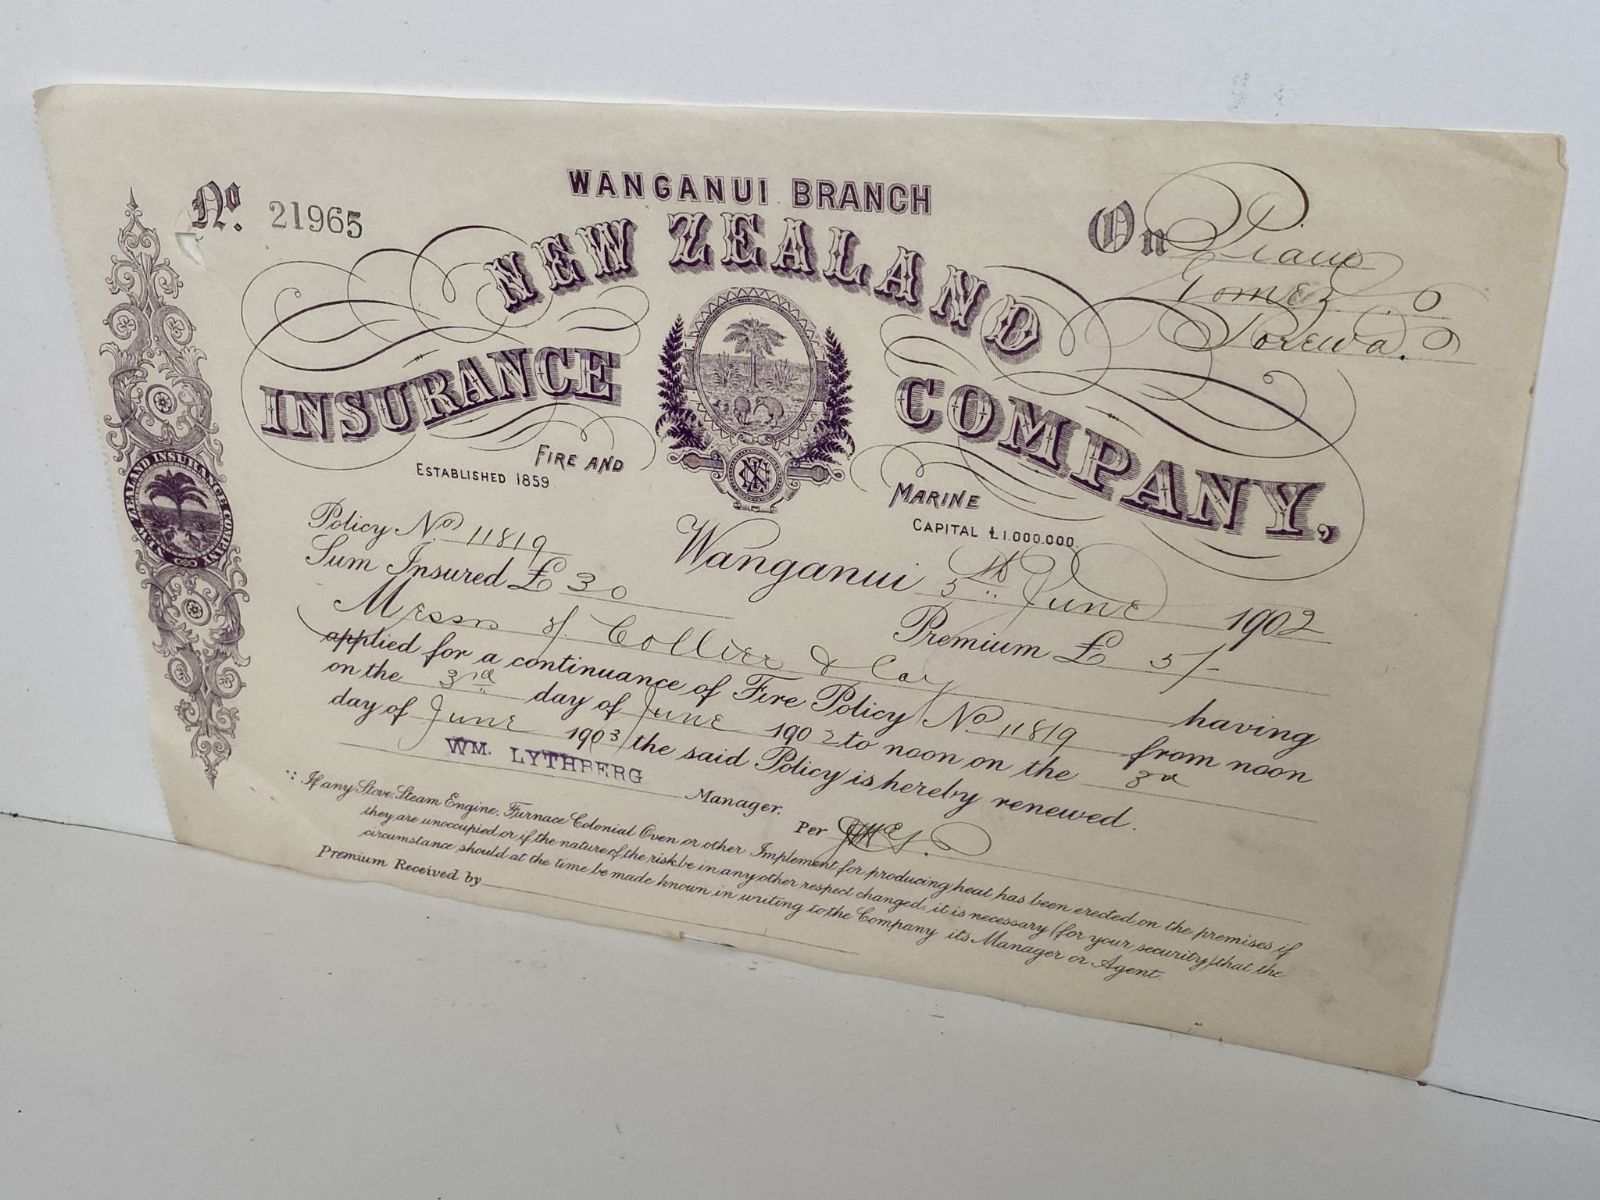 No. 21965
WANGANUI BRANCH
NEW ZEALAND
INSURANCE COMPANY,
FIRE AND MARINE
ESTABLISHED 1859
CAPITAL £1.000.000
On Piano
Porewa.
NEW ZEALAND INSURANCE COMPANY
NZI
Policy No 11819
Wanganui 5th June 1902
Sum Insured £ 30
Premium £ 5/-
Messrs H. Collier & Coy having
applied for a continuance of Fire Policy No 11819 from noon
on the 3rd day of June 1902 to noon on the 3rd
day of June 1903 the said Policy is hereby renewed.
WM. LYTHBERG Manager.
Per
If any Stove, Steam Engine, Furnace Colonial Oven or other Implement for producing heat has been erected on the premises if
they are unoccupied or if the nature of the risk be in any other respect changed, it is necessary (for your security) that the
circumstance should at the time be made known in writing to the Company its Manager or Agent.
Premium Received by